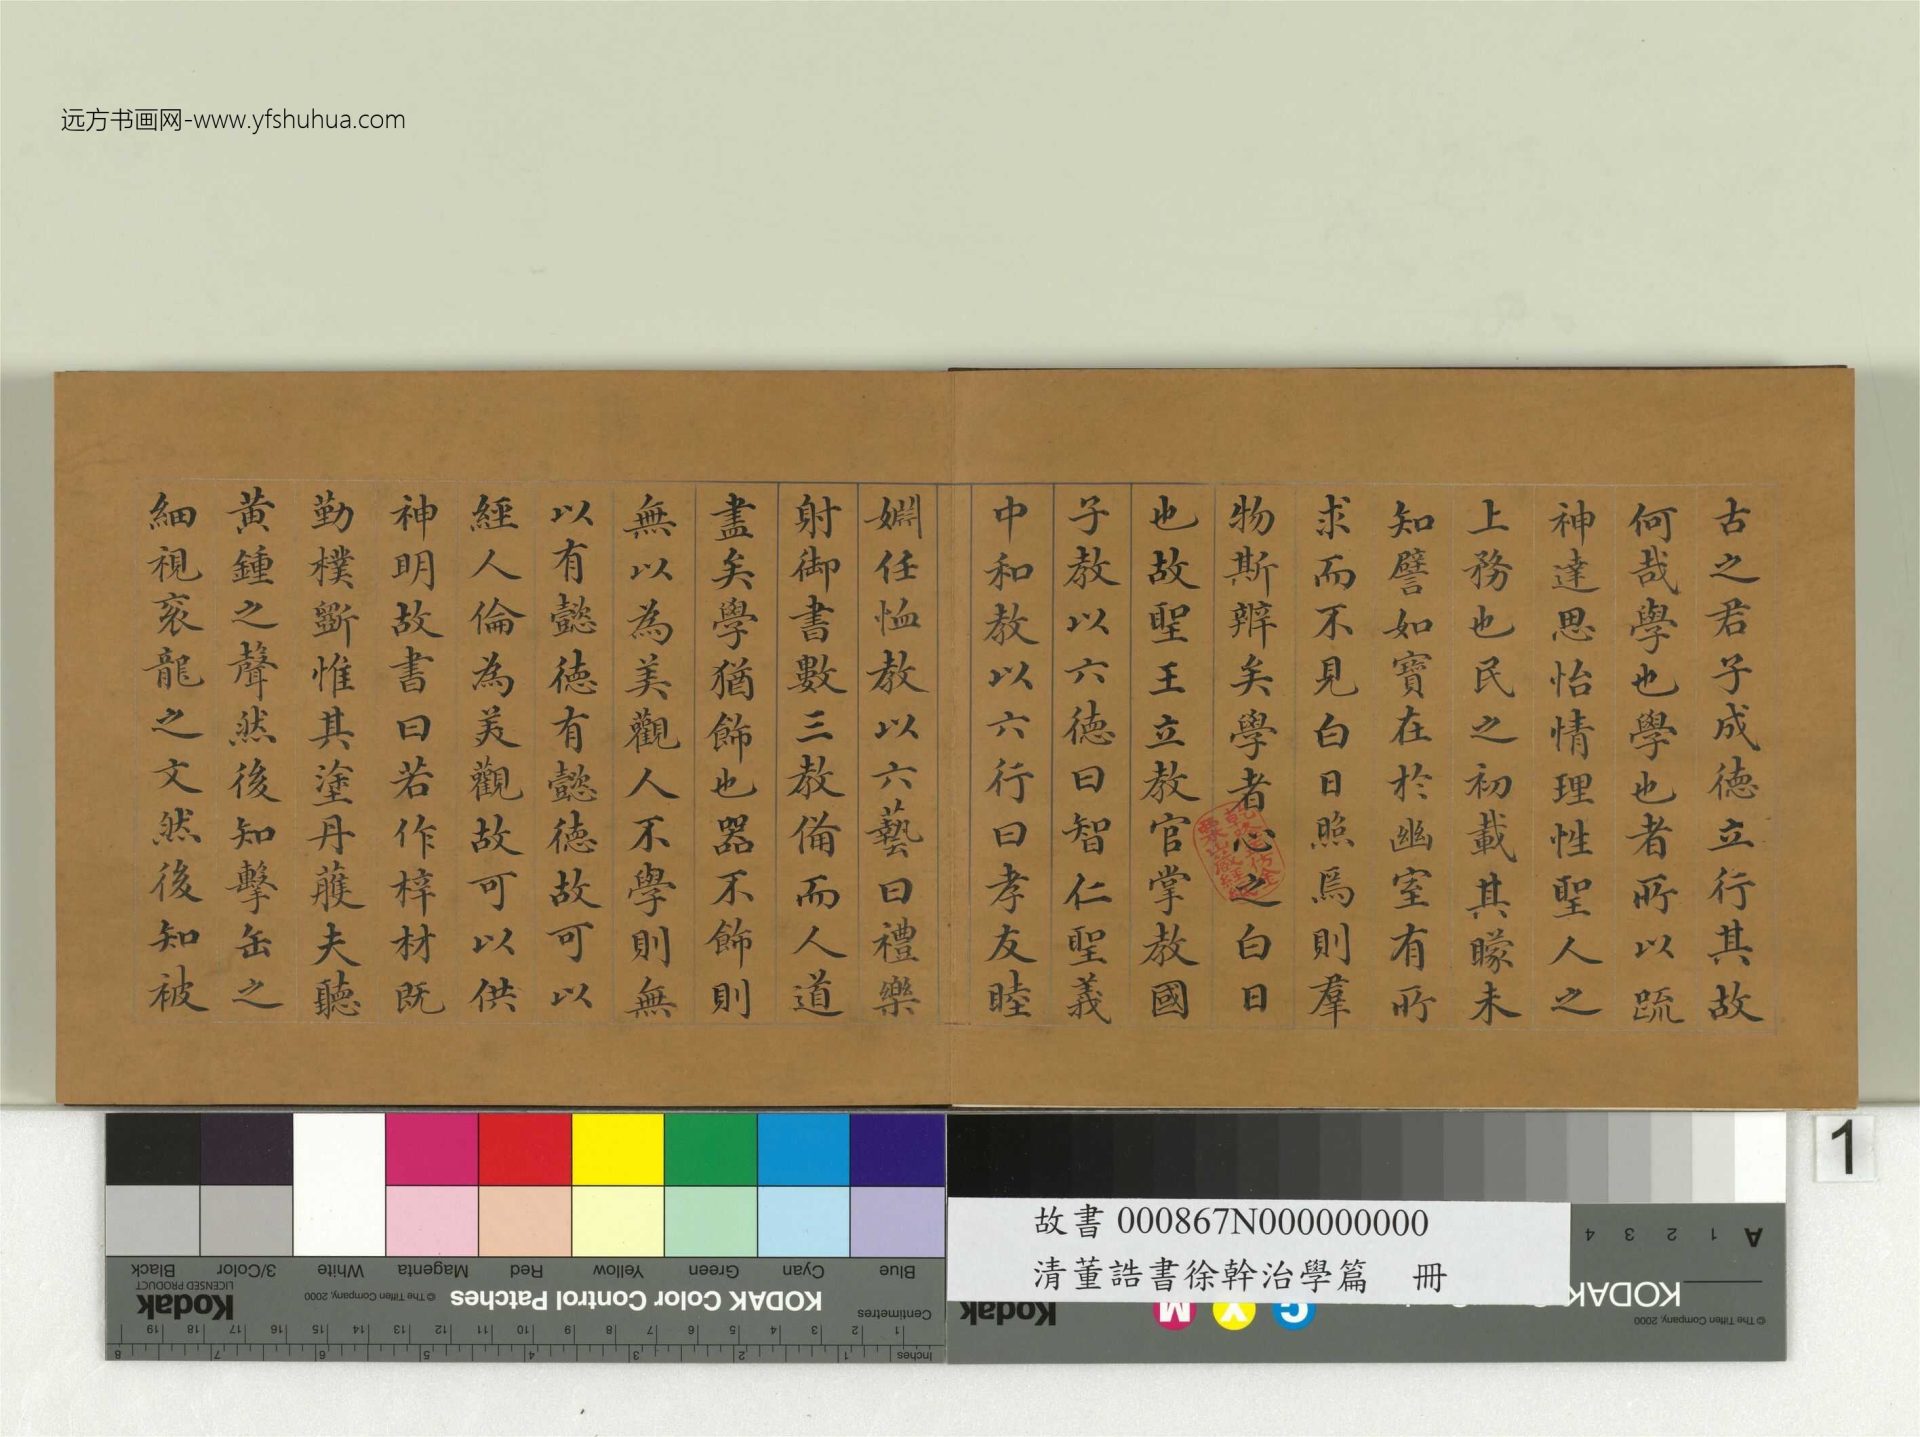 远方书画网-www.yfshuhua.com
古之君子成德立行其故
何哉學也學也者所以疏
神達思怡情理性聖人之
上務也民之初載其矇未
知譬如寶在於幽室有所
求而不見白日照焉則羣
物斯辨矣學者心之白日
也故聖王立教官掌教國
子教以六德曰智仁聖義
中和教以六行曰孝友睦
婣任恤教以六藝曰禮樂
射御書數三教備而人道
盡矣學猶飾也器不飾則
無以為美觀人不學則無
以有懿德有懿德故可以
經人倫為美觀故可以供
神明故書曰若作梓材既
勤樸斲惟其塗丹雘夫聽
黄鍾之聲然後知擊缶之
細視衮龍之文然後知被
乾隆仿金
粟山藏經紙
1
故書000867N000000000
清董誥書徐幹治學篇 冊
A 1 2 3 4
KODAK
© The Tiffen Company, 2000
Kodak
C Y M
Blue Cyan Green Yellow Red Magenta White 3/Color Black
KODAK Color Control Patches
© The Tiffen Company, 2000
Kodak
LICENSED PRODUCT
Centimetres 1 2 3 4 5 6 7 8 9 10 11 12 13 14 15 16 17 18 19
Inches 1 2 3 4 5 6 7 8